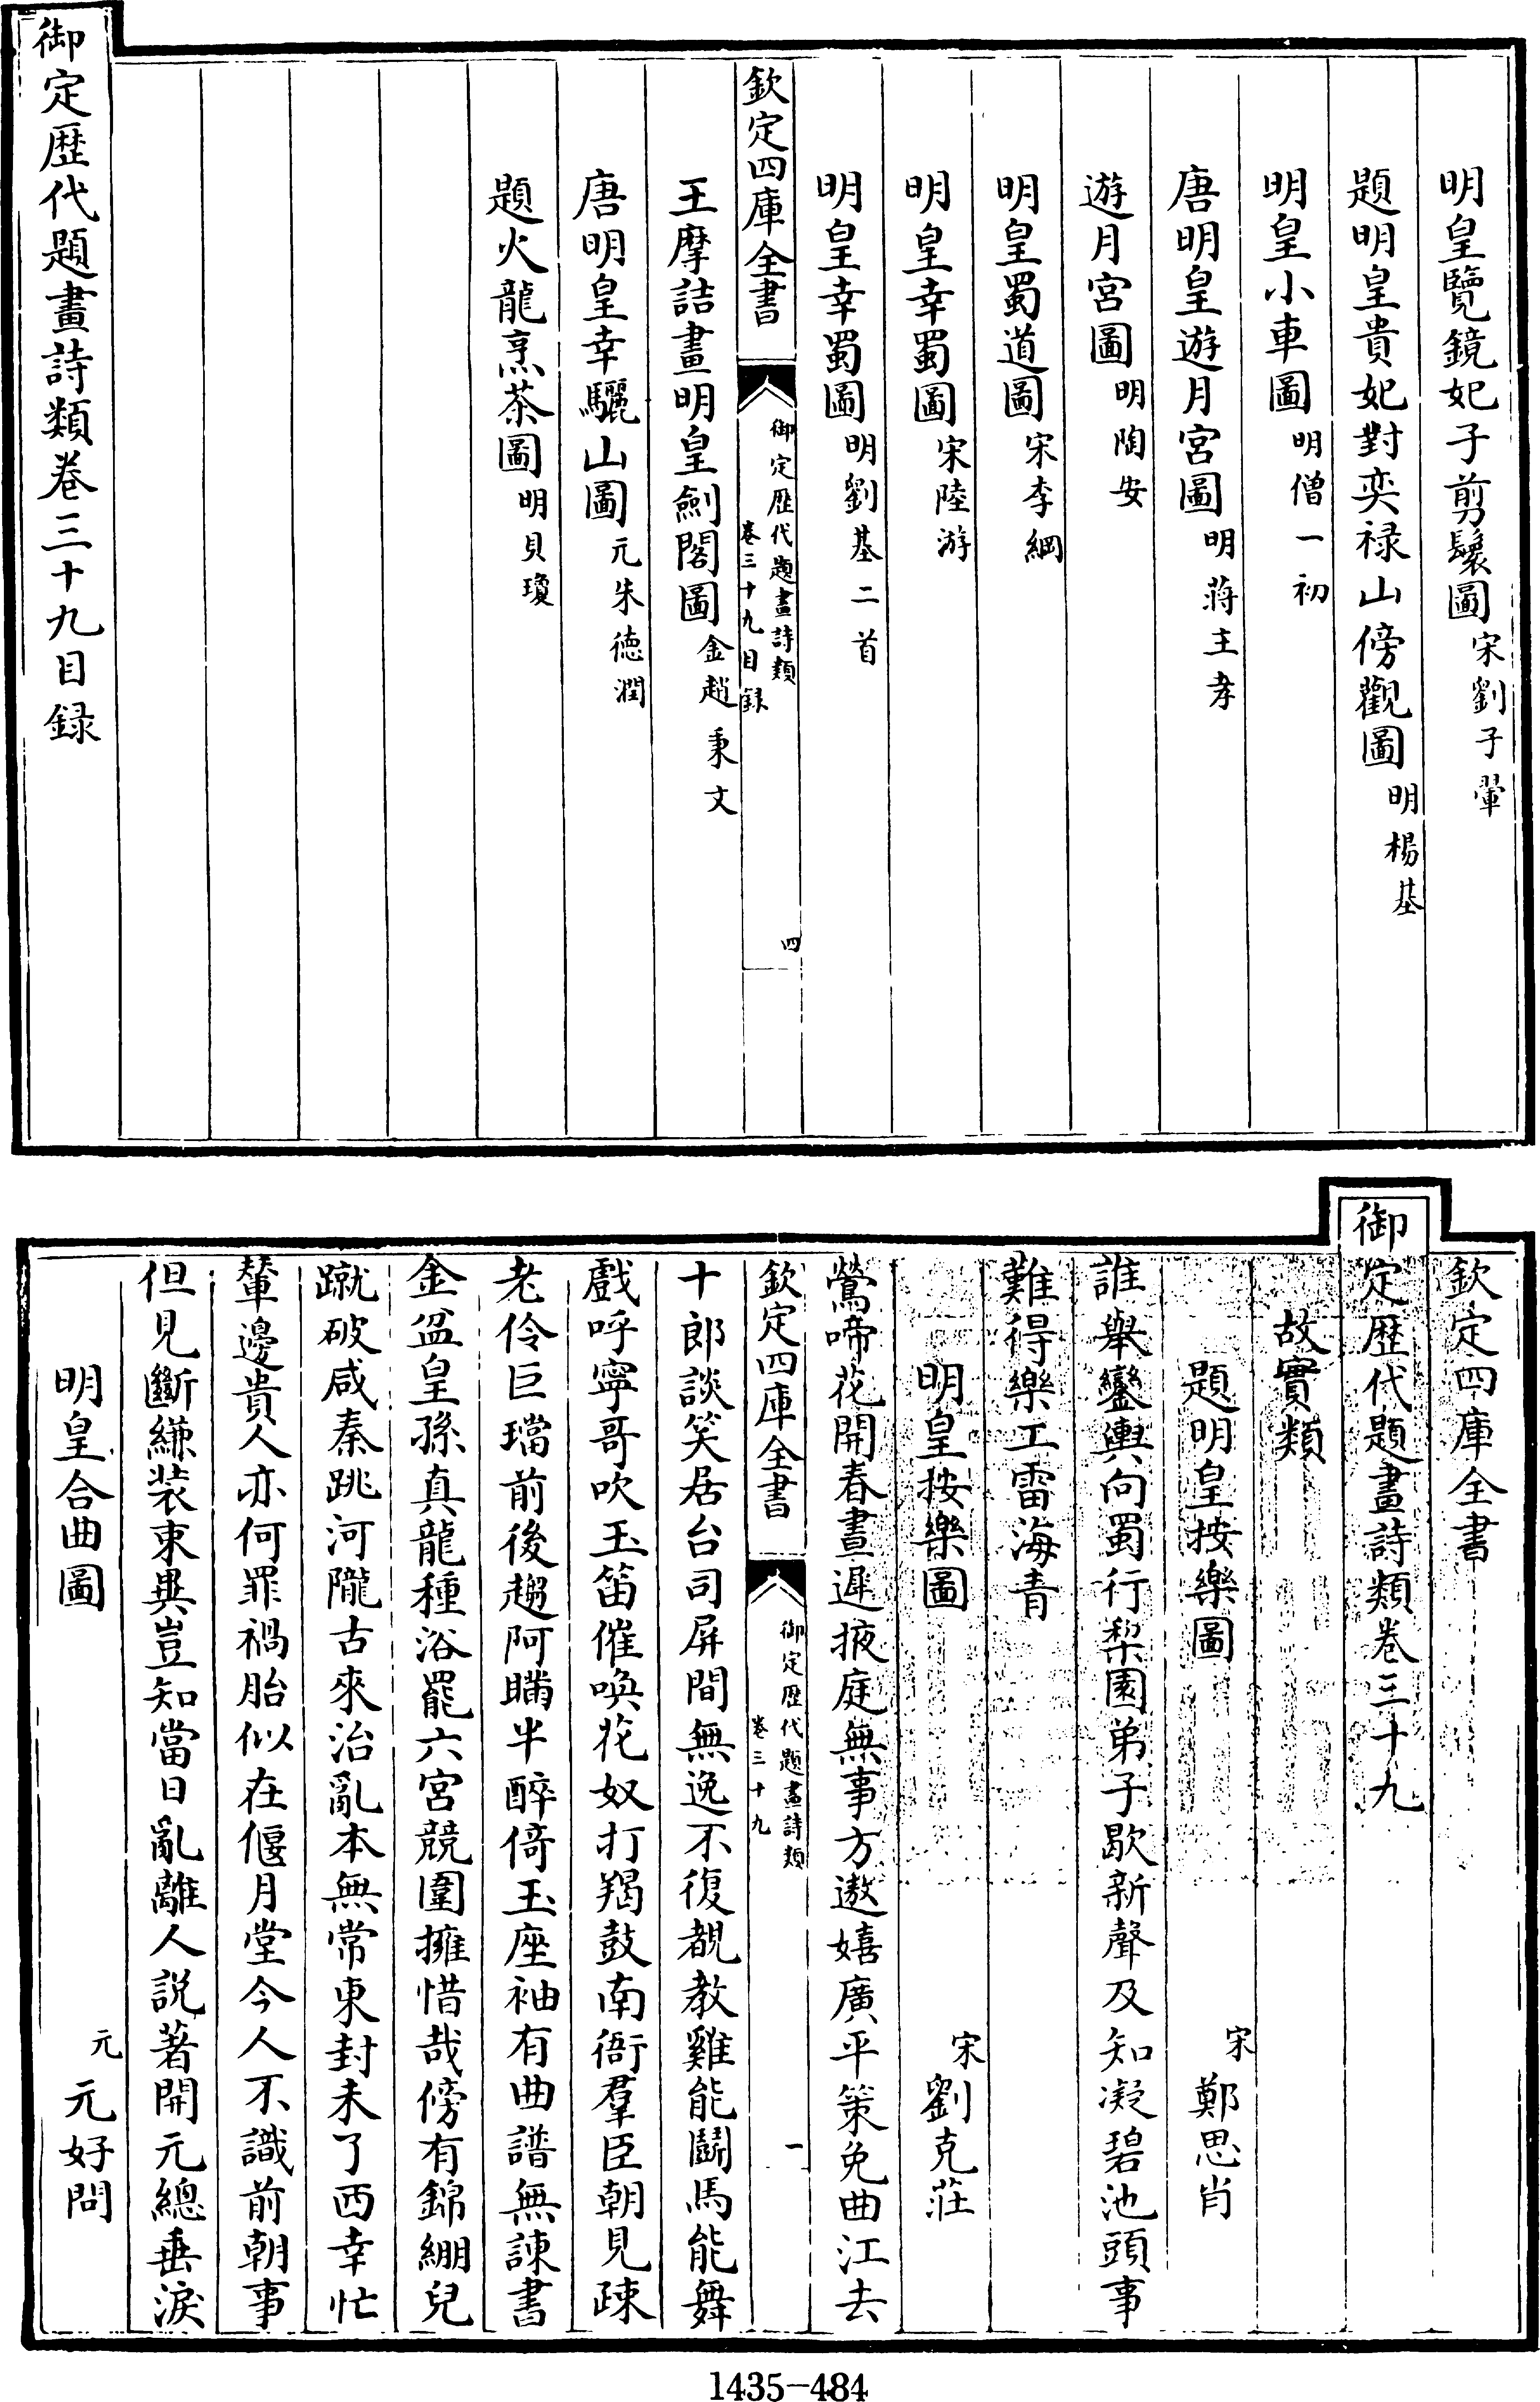 明皇覽鏡妃子剪鬟圖宋劉子翬
題明皇貴妃對奕禄山傍觀圖明楊基
明皇小車圖明僧一初
唐明皇遊月宮圖明蔣主孝
遊月宮圖明陶安
明皇蜀道圖宋李綱
明皇幸蜀圖宋陸游
明皇幸蜀圖明劉基二首
欽定四庫全書
御定歴代題畫詩類
卷三十九目録
四
王摩詰畫明皇劍閣圖金趙秉文
唐明皇幸驪山圖元朱德潤
題火龍烹茶圖明貝瓊
御定歴代題畫詩類卷三十九目録
欽定四庫全書
御定歴代題畫詩類卷三十九
故實類
題明皇按樂圖宋鄭思肖
誰舉鑾輿向蜀行梨園弟子歇新聲及知凝碧池頭事
難得樂工雷海青
明皇按樂圖宋劉克莊
鶯啼花開春晝遲掖庭無事方遨嬉廣平策免曲江去
欽定四庫全書
御定歴代題畫詩類
卷三十九
一
十郎談笑居台司屏間無逸不復覩教雞能鬭馬能舞
戲呼寧哥吹玉笛催喚花奴打羯鼓南衙羣臣朝見疎
老伶巨璫前後趨阿瞞半醉倚玉座袖有曲譜無諫書
金盆皇孫真龍種浴罷六宮競圍擁惜哉傍有錦綳兒
蹴破咸秦跳河隴古來治亂本無常東封未了西幸忙
輦邊貴人亦何罪禍胎似在偃月堂今人不識前朝事
但見斷縑装束異豈知當日亂離人説著開元總垂淚
明皇合曲圖元元好問
1435-484